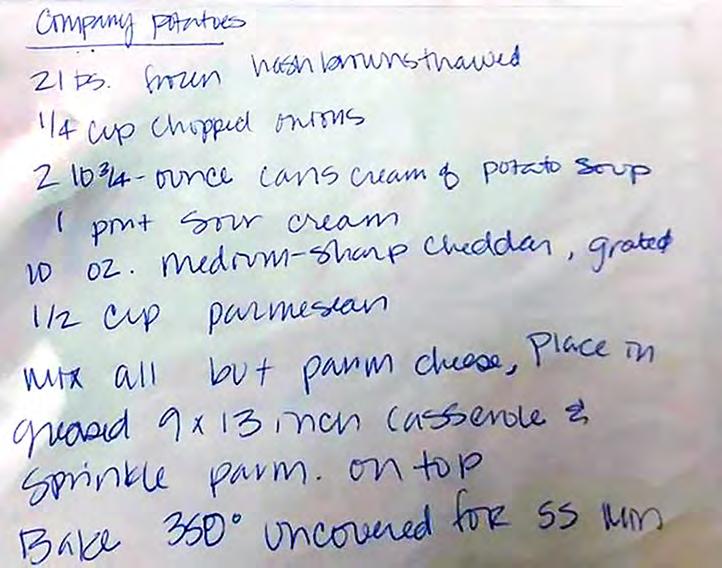 Company potatoes
2 lbs. frozen hashbrowns thawed
1/4 cup chopped onions
2 10 3/4-ounce cans cream of potato soup
1 pint sour cream
10 oz. medium-sharp cheddar, grated
1/2 cup parmesean
mix all but parm cheese, place in
greased 9x13 inch casserole &
sprinkle parm. on top
Bake 350° uncovered for 55 min